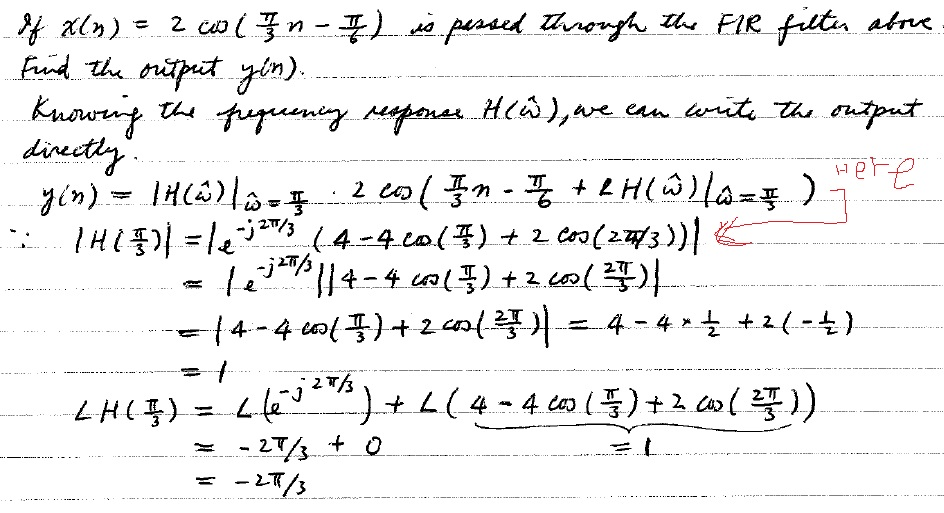 If x(n) = 2 cos(π/3 n − π/6) is passed through the FIR filter above.
Find the output y(n).
Knowing the frequency response H(ω̂), we can write the output
directly.
Here
y(n) = |H(ω̂)|_ω̂=π/3 · 2 cos(π/3 n − π/6 + ∠H(ω̂)|_ω̂=π/3)
∵ |H(π/3)| = |e^-j2π/3 (4 − 4 cos(π/3) + 2 cos(2π/3))|
= |e^-j2π/3||4 − 4 cos(π/3) + 2 cos(2π/3)|
= |4 − 4 cos(π/3) + 2 cos(2π/3)| = 4 − 4 × 1/2 + 2(−1/2)
= 1
∠H(π/3) = ∠(e^-j2π/3) + ∠(4 − 4 cos(π/3) + 2 cos(2π/3))
= −2π/3 + 0 = 1
= −2π/3